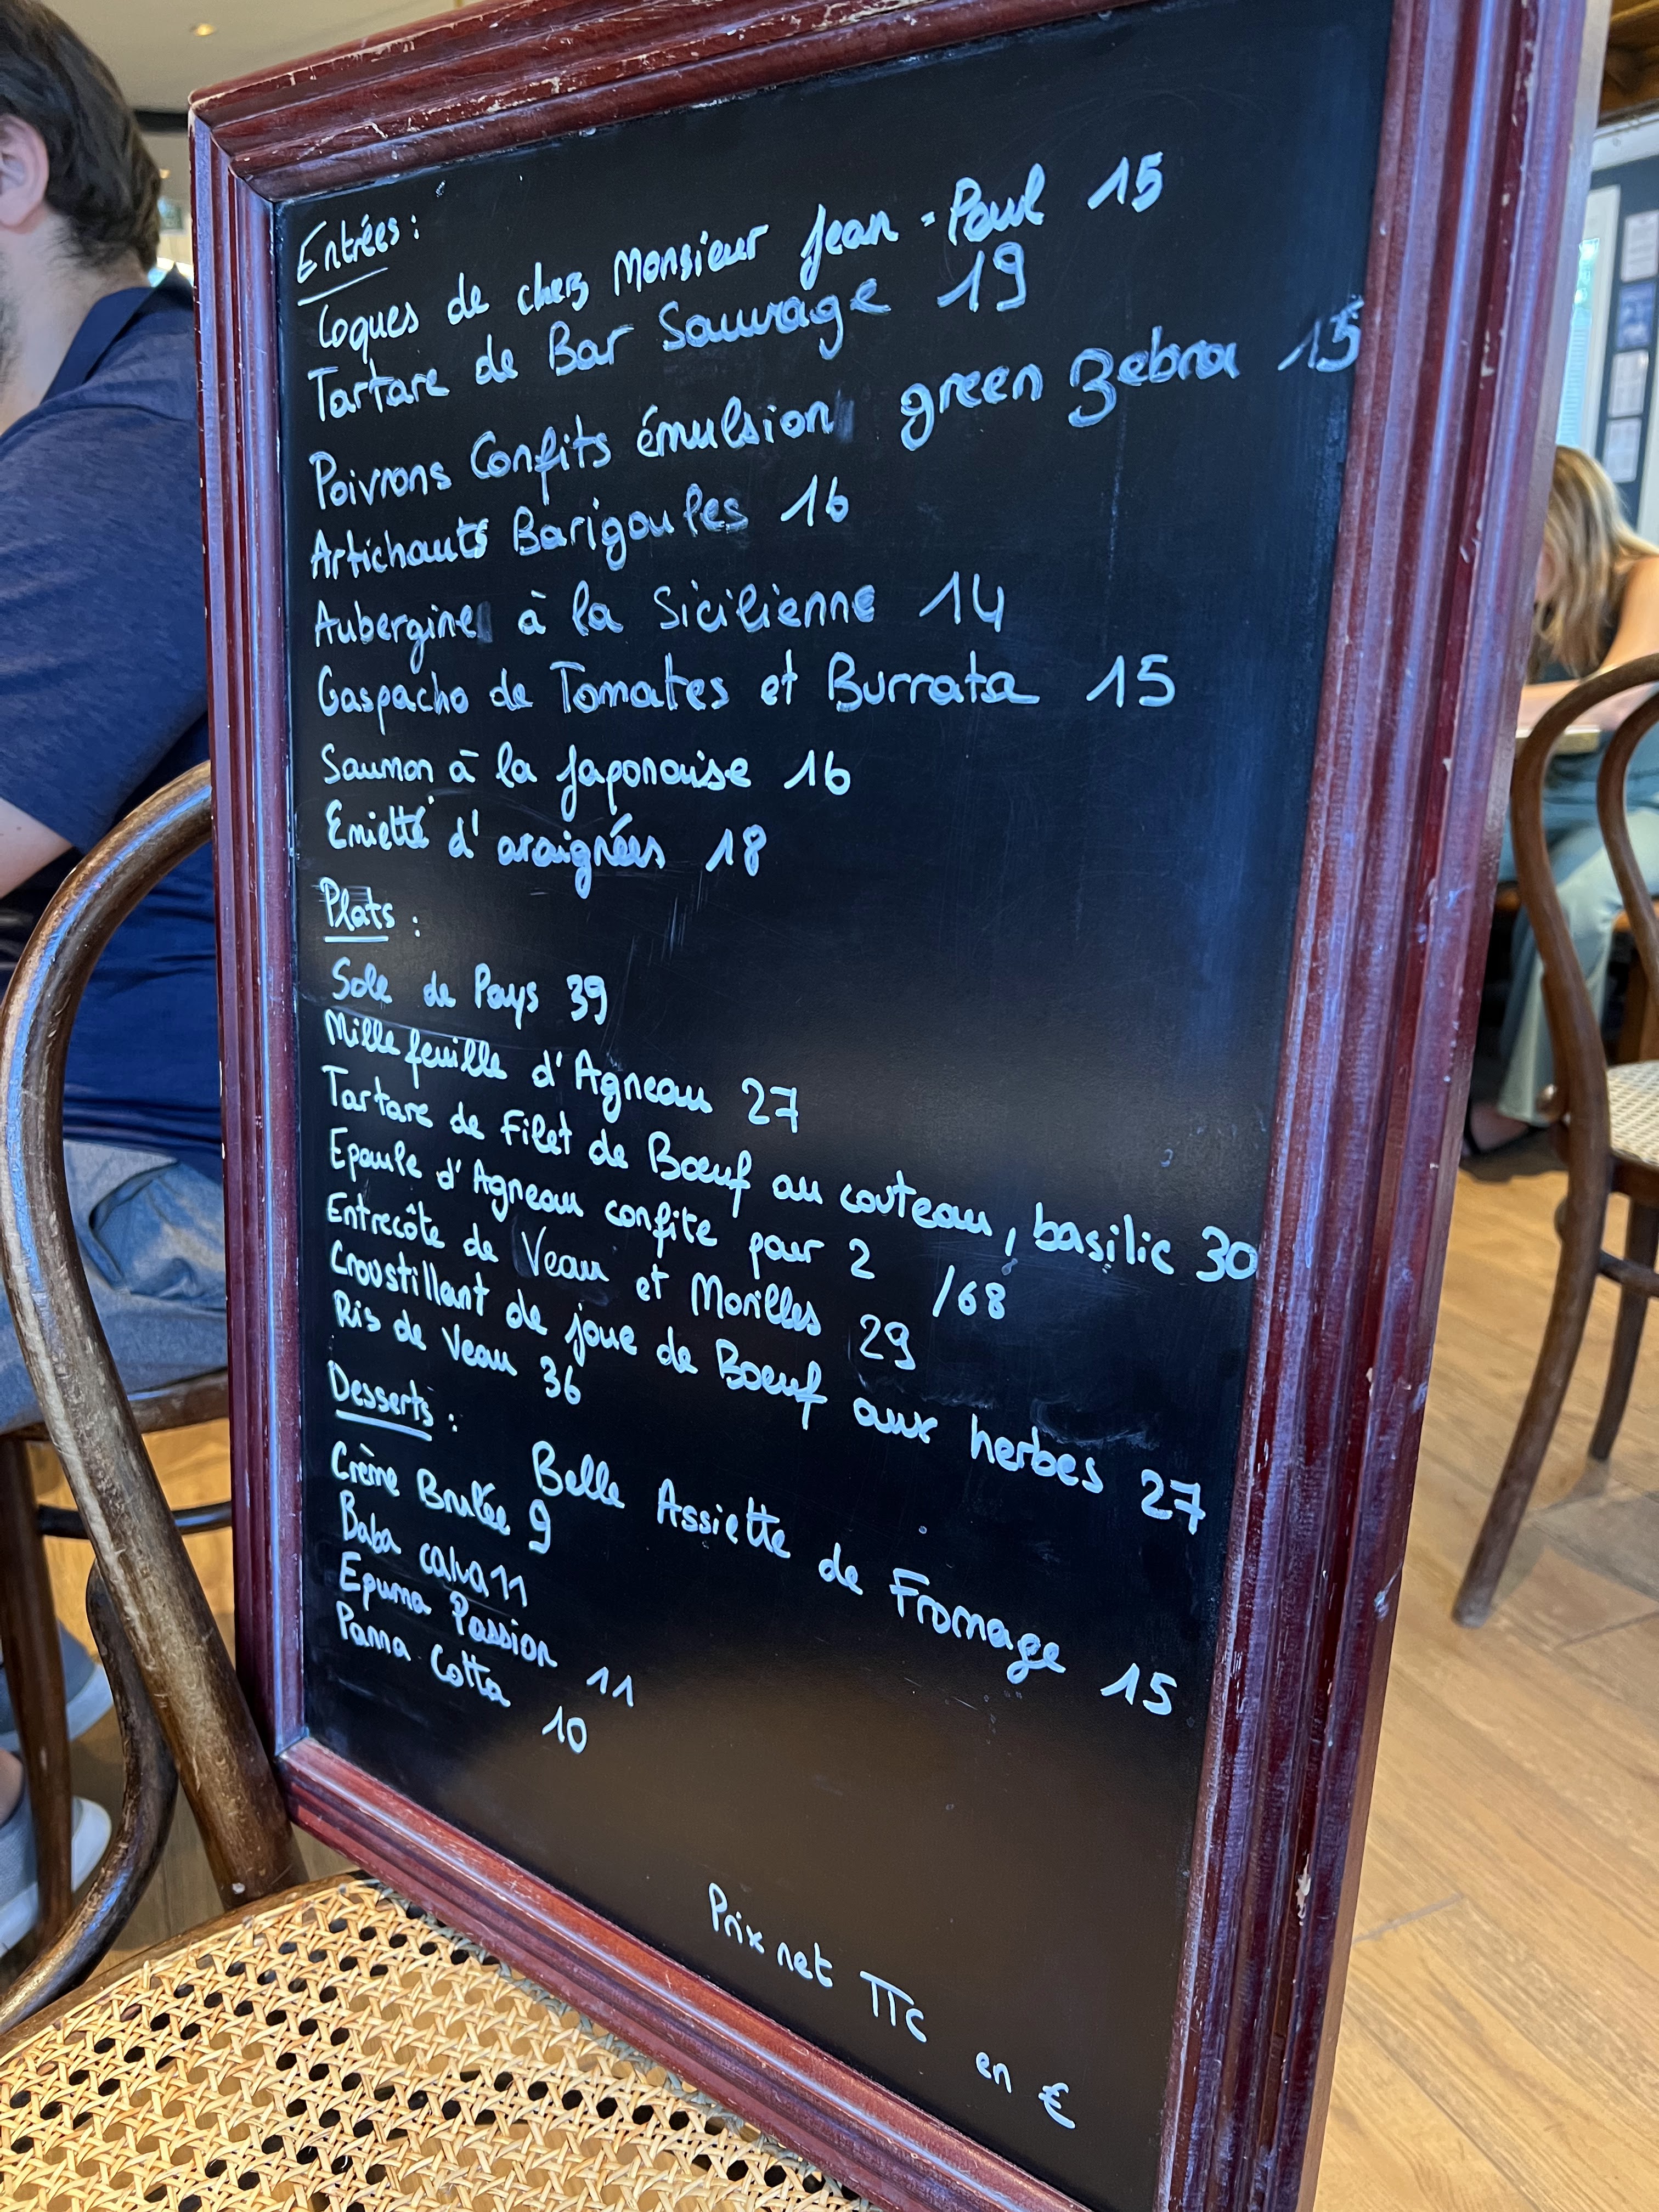 Entrées :
Coques de chez Monsieur Jean-Paul 15
Tartare de Bar Sauvage 19
Poivrons Confits émulsion green zebra 15
Artichauts Barigoules 16
Aubergine à la Sicilienne 14
Gaspacho de Tomates et Burrata 15
Saumon à la Japonaise 16
Emietté d'araignées 18
Plats :
Sole de Pays 39
Mille feuille d'Agneau 27
Tartare de Filet de Bœuf au couteau, basilic 30
Epaule d'Agneau confite pour 2 /68
Entrecôte de Veau et Morilles 29
Croustillant de joue de Bœuf aux herbes 27
Ris de Veau 36
Desserts :
Belle Assiette de Fromage 15
Crème Brulée 9
Baba calva 11
Epuma Passion 11
Panna Cotta 10
Prix net TTC en €